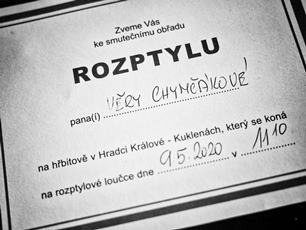 Zveme Vás
ke smutečnímu obřadu
ROZPTYLU
pana(í) VĚRY CHYMČÁKOVÉ
na hřbitově v Hradci Králové - Kuklenách, který se koná
na rozptylové loučce dne 9.5.2020 v 11 10